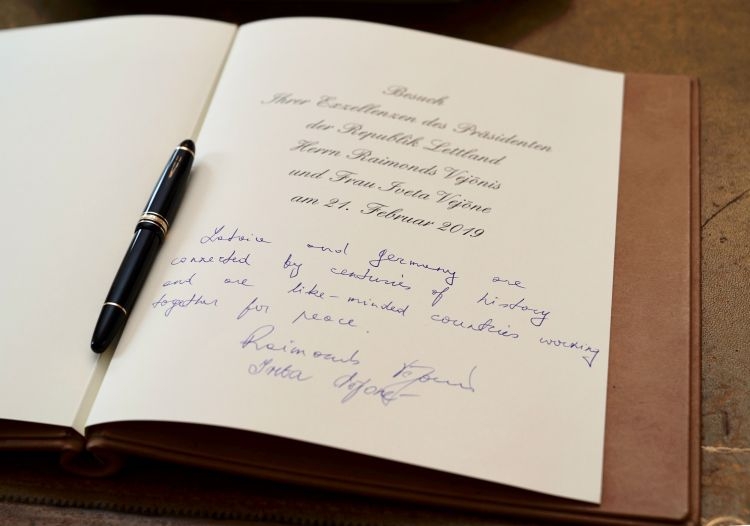 Besuch
Ihrer Exzellenzen des Präsidenten
der Republik Lettland
Herrn Raimonds Vējonis
und Frau Iveta Vējone
am 21. Februar 2019
Latvia and Germany are
connected by centuries of history
and are like-minded countries working
together for peace.
Raimonds Vējonis
Iveta Vējone